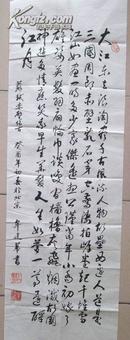 大江东去浪淘尽千古风流人物故垒西边人道是
三国周郎赤壁乱石穿空惊涛拍岸卷起千堆雪
江山如画一时多少豪杰遥想公瑾当年小乔初嫁了
雄姿英发羽扇纶巾谈笑间樯橹灰飞烟灭故国
神游多情应笑我早生华发人生如梦一尊还酹
江月
苏轼赤壁怀古 癸酉年初春于北京 书